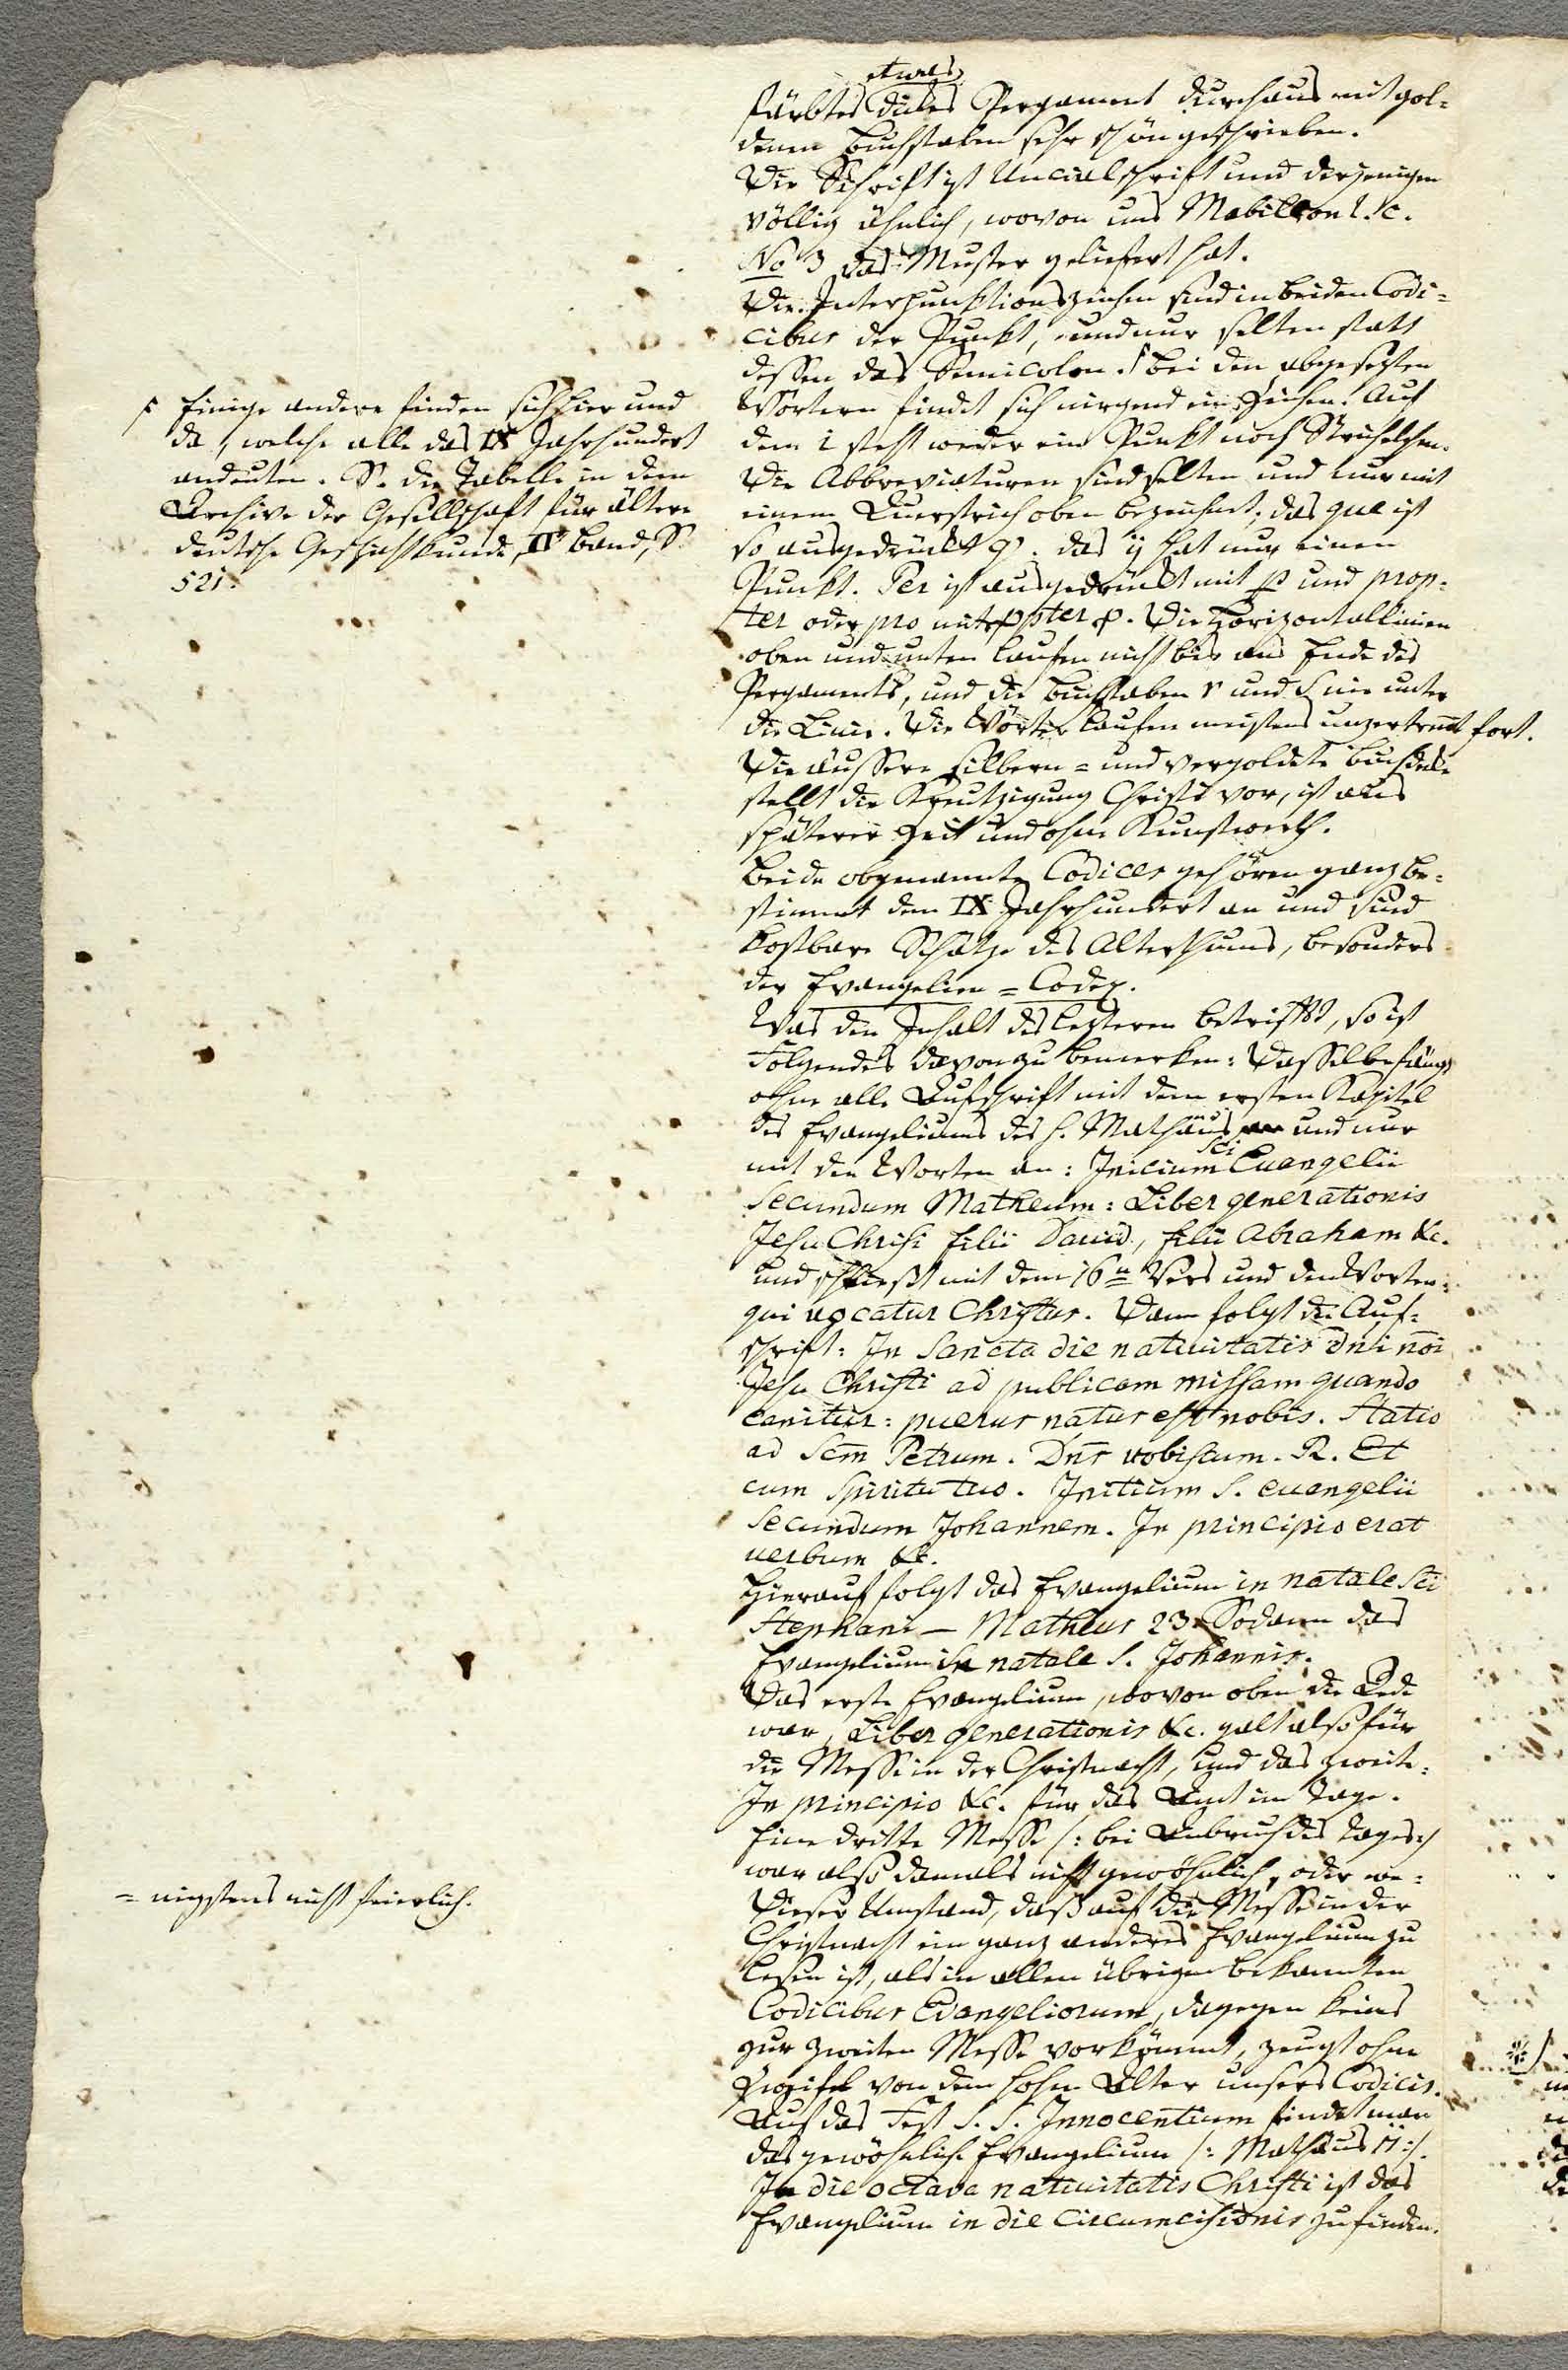 etwas
färbtes dickes Pergament durchaus mit gol=
denen Buchstaben sehr schön geschrieben.
Die Schrift ist Uncialschrift und derjenigen
völlig ähnlich, wovon uns Mabillon l. c.
No 3 das Muster geliefert hat.
Die Interpunktionszeichen sind in beiden Codi=
cibus der Punkt, und nur selten statt
dessen das Semicolon. Bei den abgesetzten
Wörtern findet sich nirgend ein Zeichen. Auf
dem i steht weder ein Punkt noch Strichelchen.
Die Abbreviaturen sind selten und nur mit
einem Querstrich oben bezeichnet; das que ist
so ausgedrückt q. das ÿ hat nur einen
Punkt. Per ist ausgedrückt mit p und prop=
ter oder pro mit ppter p. Die Horizontallinien
oben und unten laufen nicht bis ans Ende des
Pergaments, und die Buchstaben r und s nie unter
die Linie. Die Wörter laufen meistens unzertrent fort.
Die äussere silbern= und vergoldete Buchdecke
stellt die Kreutzigung Christi vor, ist aus
späterer Zeit und ohne Kunstwerth.
Beide obgenannte Codices gehören ganz be=
stimmt dem IX Jahrhundert an und sind
kostbare Schätze des Alterthums, besonders
der Evangelien=Codex.
Was den Inhalt des letzteren betrifft, so ist
Folgendes davon zu bemerken: Dasselbe fängt
ohne alle Aufschrift mit dem ersten Kapitel
des Evangeliums des h. Mathäus und nur
sci
mit den Worten an: Inicium Euangelii
secundum Matheum: Liber generationis
Jesu Christi filii Dauid, filii Abraham &c.
und schliesst mit dem 16n Vers und den Worten:
qui uocatur Christus. Dann folgt die Auf=
schrift: In sancta die natiuitatis dni nri
Jesu Christi ad publicam missam quando
canitur: puerus natus est nobis. Statio
ad Scm Petrum. Dns uobiscum. R. Et
cum spiritu tuo. Initium S. euangelii
secundum Johannem. In principio erat
uerbum &c.
Hierauf folgt das Evangelium in natale Sci
Stephani — Matheus 23. Sodann das
Evangelium In natale S. Johannis.
Das erste Evangelium, wovon oben die Rede
war, Liber generationis &c. galt also für
die Messe in der Christnacht, und das zweite:
In principio &c. für das Amt im Tage.
Eine dritte Messe /: bei Anbruch des Tages :/
war also damals nicht gewöhnlich, oder we=
Dieser Umstand, dass auf die Messe in der
Christnacht ein ganz anderes Evangelium zu
lesen ist, als in allen übrigen bekannten
Codicibus Evangeliorum, dagegen keines
zur zweiten Messe vorkömmt, zeugt ohne
Zweifel von dem hohen Alter unsers Codicis.
Auf das Fest S. S. Innocentium findet man
das gewöhnliche Evangelium /: Mathäus II :/.
In die octava natiuitatis Christi ist das
Evangelium in die Circumcisionis zu finden.
Einige andere finden sich hier und
da, welche alle das IX Jahrhundert
andeuten. S. die Tabelle in dem
Archive der Gesellschaft für ältere
deutsche Geschichtkunde, IV Band, S.
521.
= nigstens nicht feierlich.